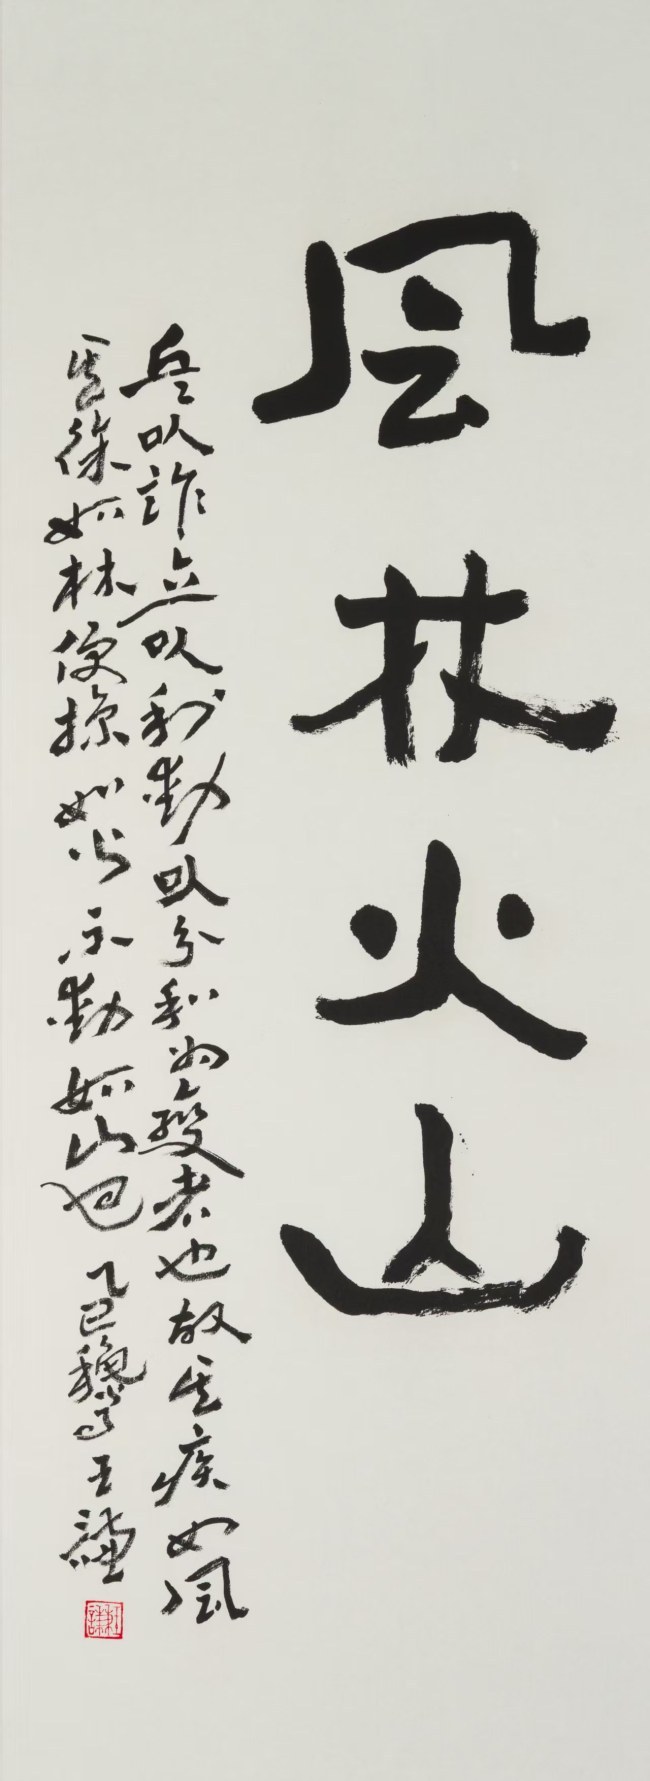 風林火山
兵以詐立以利動以分和為變者也故其疾如風
其徐如林侵掠如火不動如山也 乙巳 王謙